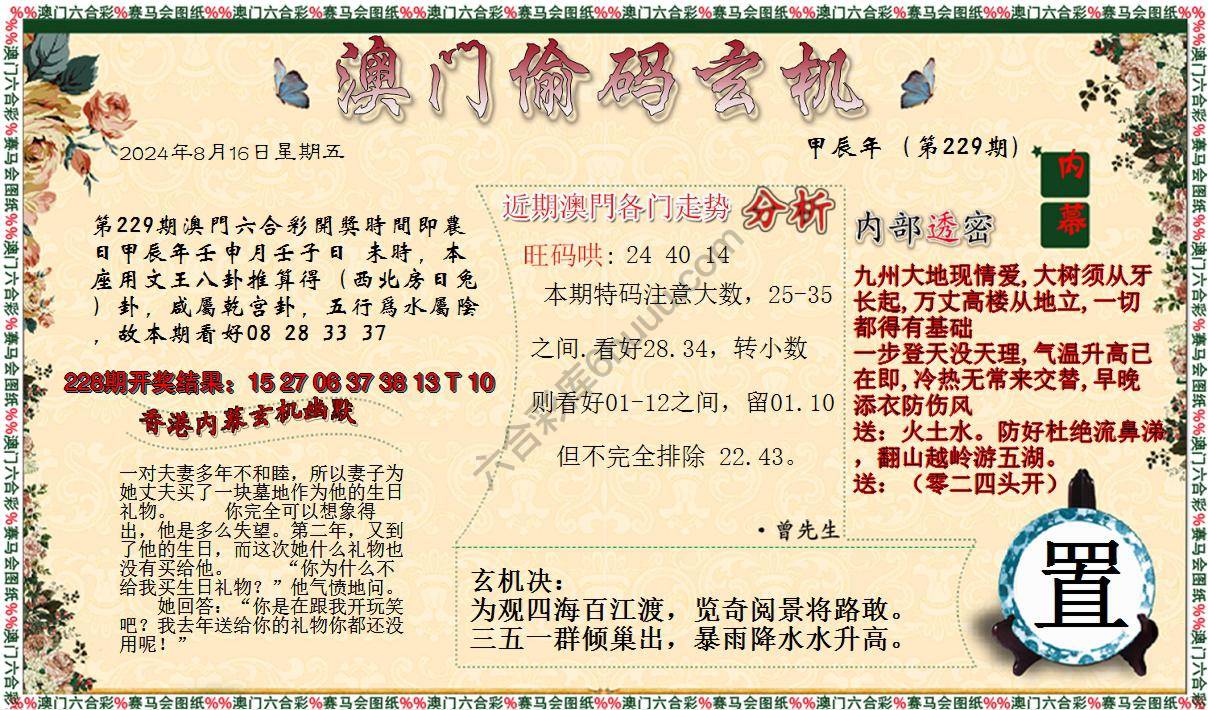 %%澳门六合彩%赛马会图纸%%澳门六合彩%赛马会图纸%%澳门六合彩%赛马会图纸%%澳门六合彩%赛马会图纸%%澳门六合彩%赛马会图纸%%澳门六合彩%赛马会图纸
澳门偷码玄机
2024年8月16日星期五
甲辰年（第229期）
内幕
第229期澳門六合彩開獎時間即農
日甲辰年壬申月壬子日 未時，本
座用文王八卦推算得（西北房日兔
）卦，咸屬乾宫卦，五行爲水屬陰
，故本期看好08 28 33 37
228期开奖结果：15 27 06 37 38 13 T 10
香港内幕玄机幽默
一对夫妻多年不和睦，所以妻子为
她丈夫买了一块墓地作为他的生日
礼物。 你完全可以想象得
出，他是多么失望。第二年，又到
了他的生日，而这次她什么礼物也
没有买给他。 “你为什么不
给我买生日礼物？”他气愤地问。
她回答：“你是在跟我开玩笑
吧？我去年送给你的礼物你都还没
用呢！”
近期澳門各门走势 分析
旺码哄: 24 40 14
本期特码注意大数，25-35
之间.看好28.34，转小数
则看好01-12之间，留01.10
但不完全排除 22.43。
·曾先生
内部透密
九州大地现情爱,大树须从牙
长起,万丈高楼从地立,一切
都得有基础
一步登天没天理,气温升高已
在即,冷热无常来交替,早晚
添衣防伤风
送：火土水。防好杜绝流鼻涕
，翻山越岭游五湖。
送：（零二四头开）
玄机决：
为观四海百江渡，览奇阅景将路敢。
三五一群倾巢出，暴雨降水水升高。
置
%%澳门六合彩%赛马会图纸%%澳门六合彩%赛马会图纸%%澳门六合彩%赛马会图纸%%澳门六合彩%赛马会图纸%%澳门六合彩%赛马会图纸%%澳门六合彩%赛马会图纸